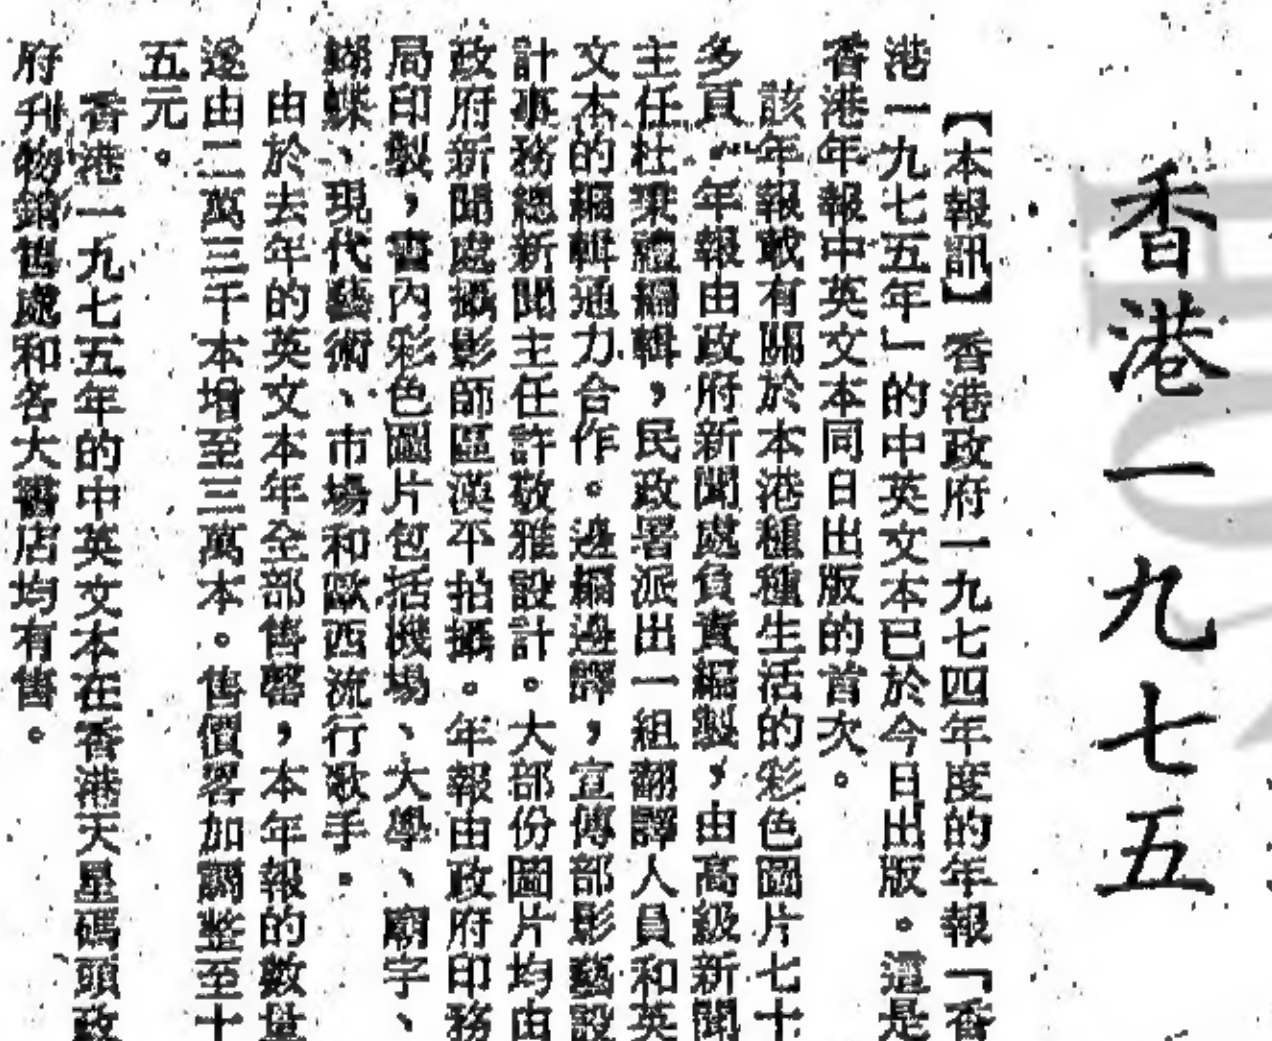 香港一九七五
【本報訊】香港政府一九七四年度的年報「香
港一九七五年」的中英文本已於今日出版。這是
香港年報中英文本同日出版的首次。
該年報載有關於本港種種生活的彩色圖片七十
多頁。年報由政府新聞處負責編製，由高級新聞
主任杜秉禮編輯，民政署派出一組翻譯人員和英
文本的編輯通力合作。邊編邊譯，宣傳部影藝設
計事務總新聞主任許敬雅設計。大部份圖片均由
政府新聞處攝影師區漢平拍攝。年報由政府印務
局印製，書內彩色圖片包括機場、大學、廟宇、
蝴蝶、現代藝術、市場和歐西流行歌手。
由於去年的英文本年全部售罄，本年報的數量
遂由二萬三千本增至三萬本。售價畧加調整至十
五元。
香港一九七五年的中英文本在香港天星碼頭政
府刊物銷售處和各大書店均有售。